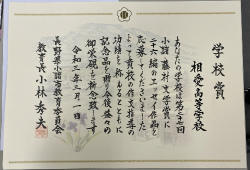 学校賞
相愛高等学校
あなたの学校は第二十七回
小諸・藤村文学賞に
七十六編のエッセイ作品を
応募してくださいました
よって貴校の作文指導の
功績を称えるとともに
記念品を贈り今後益々の
御発展を祈念致します
令和三年三月一日
長野県小諸市教育委員会
教育長小林秀夫